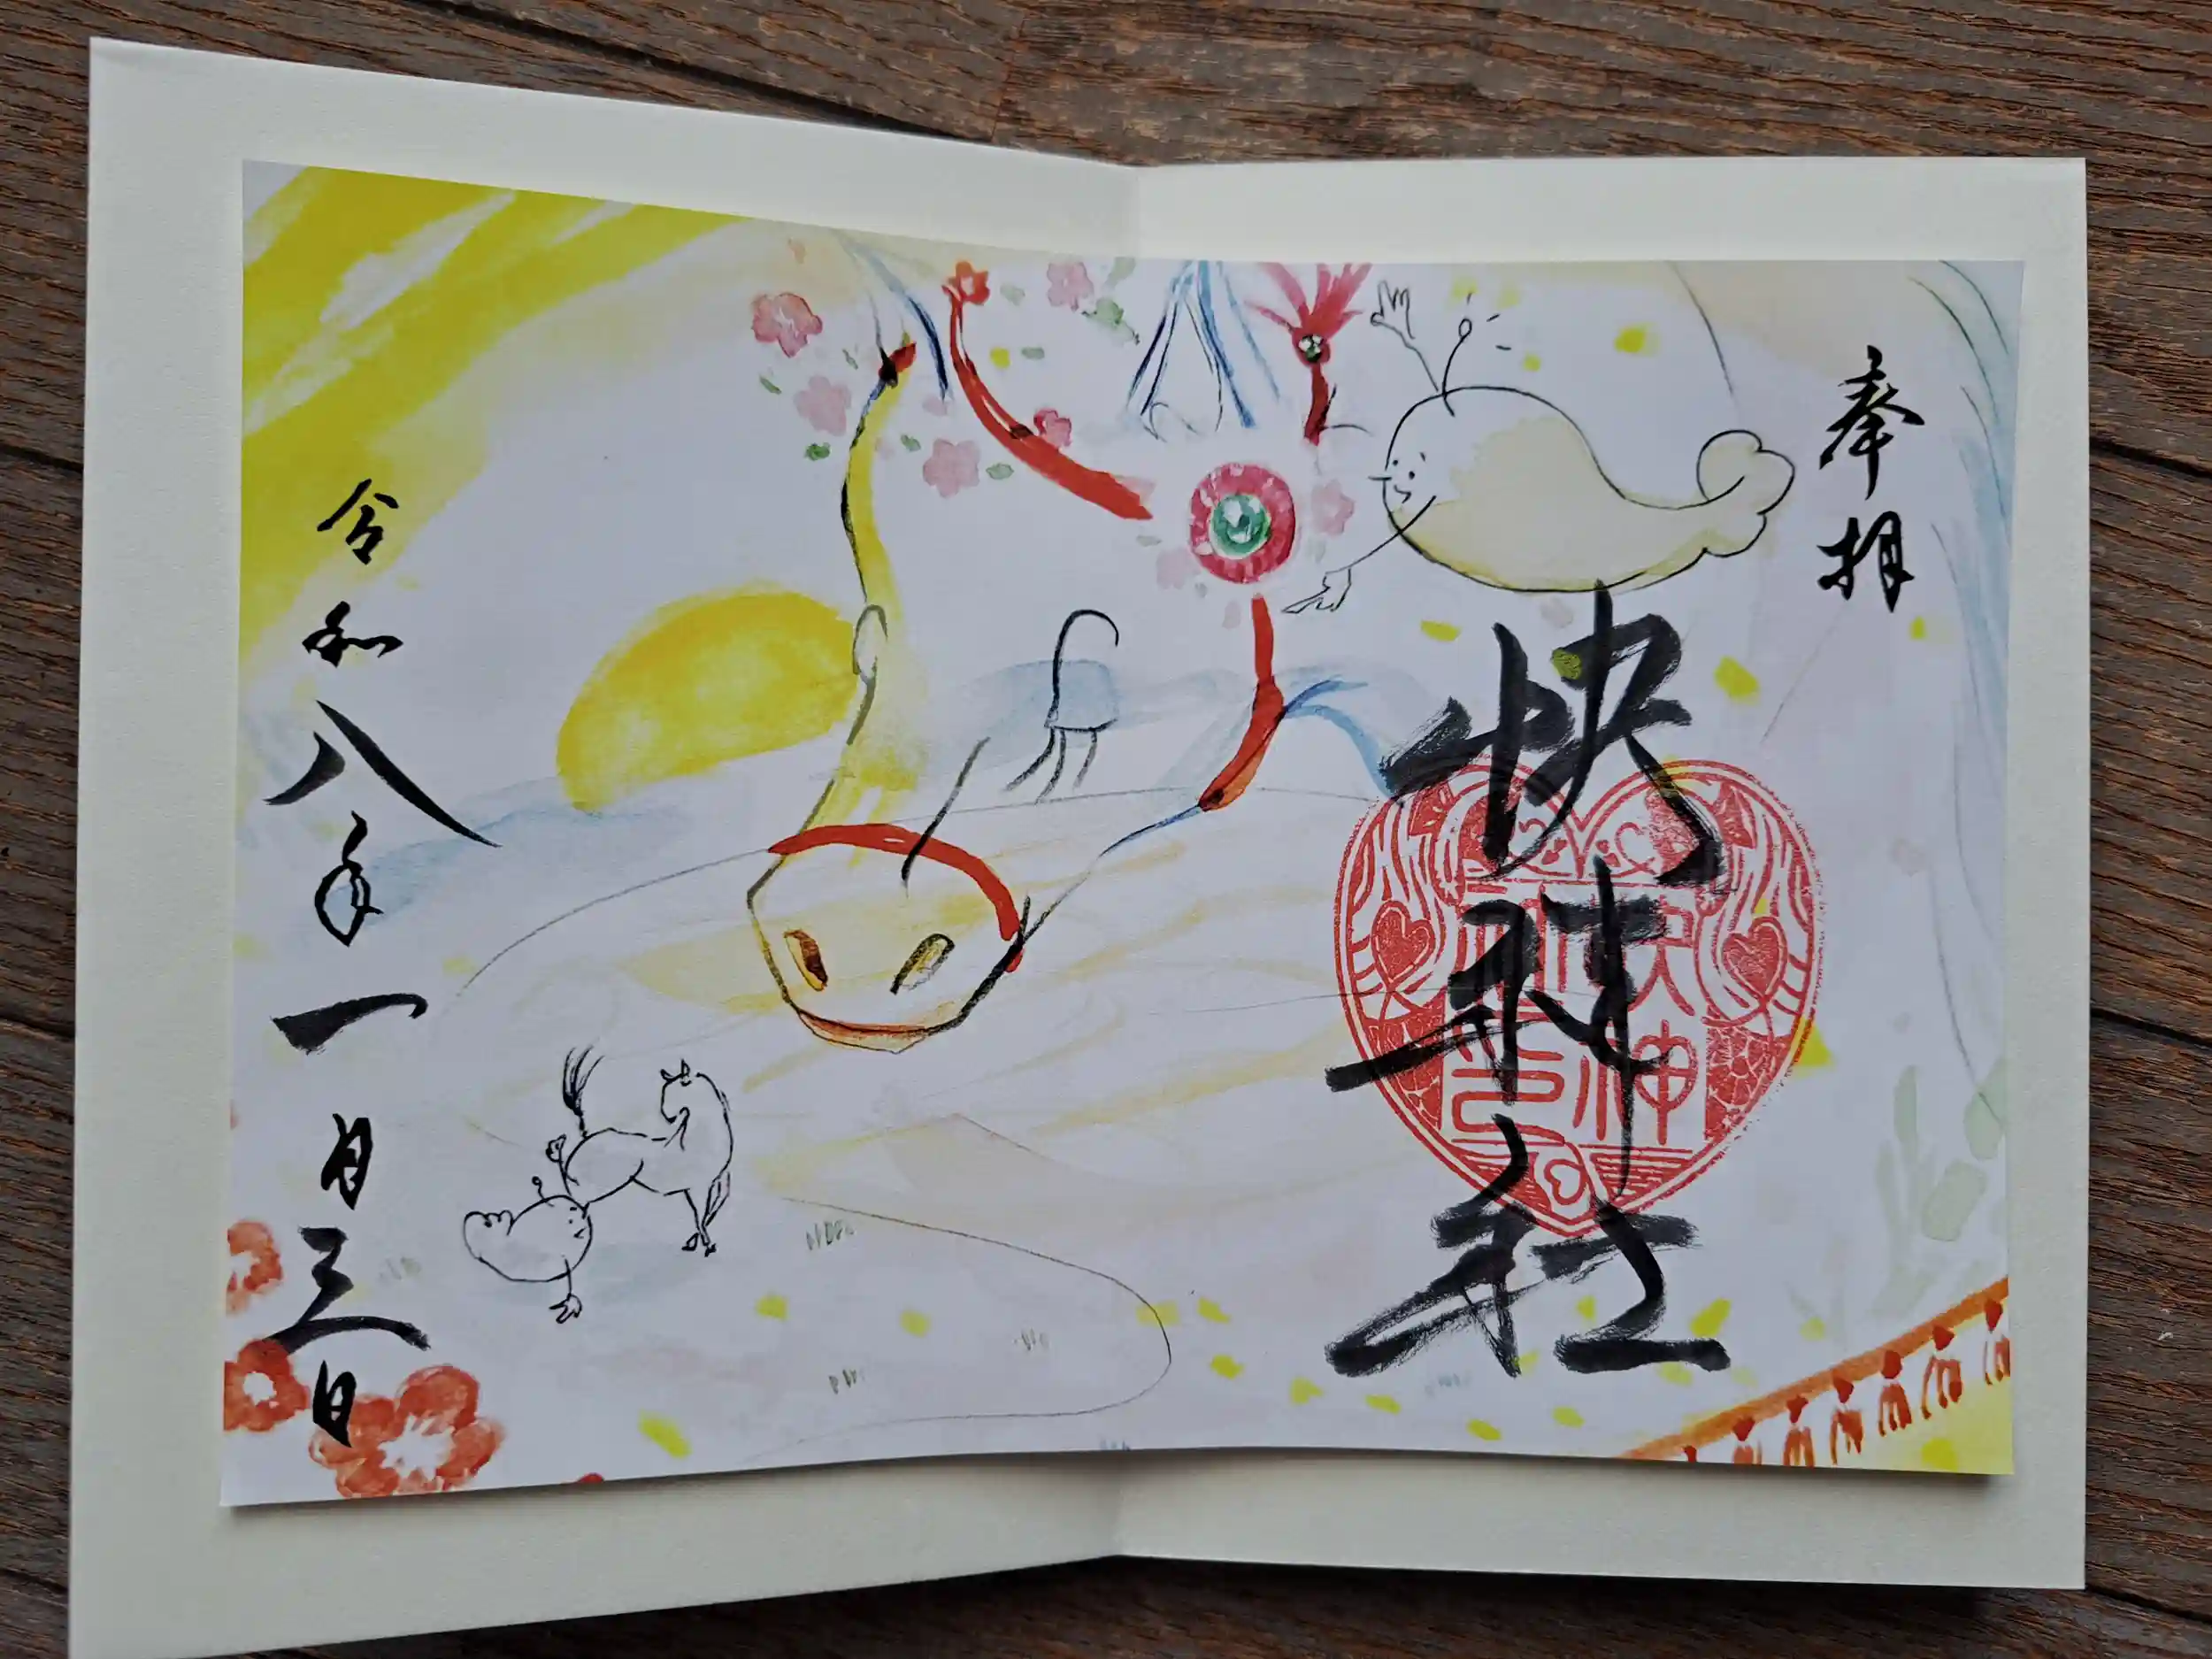 奉拝
快神社
快神
社印
令和八年一月三日